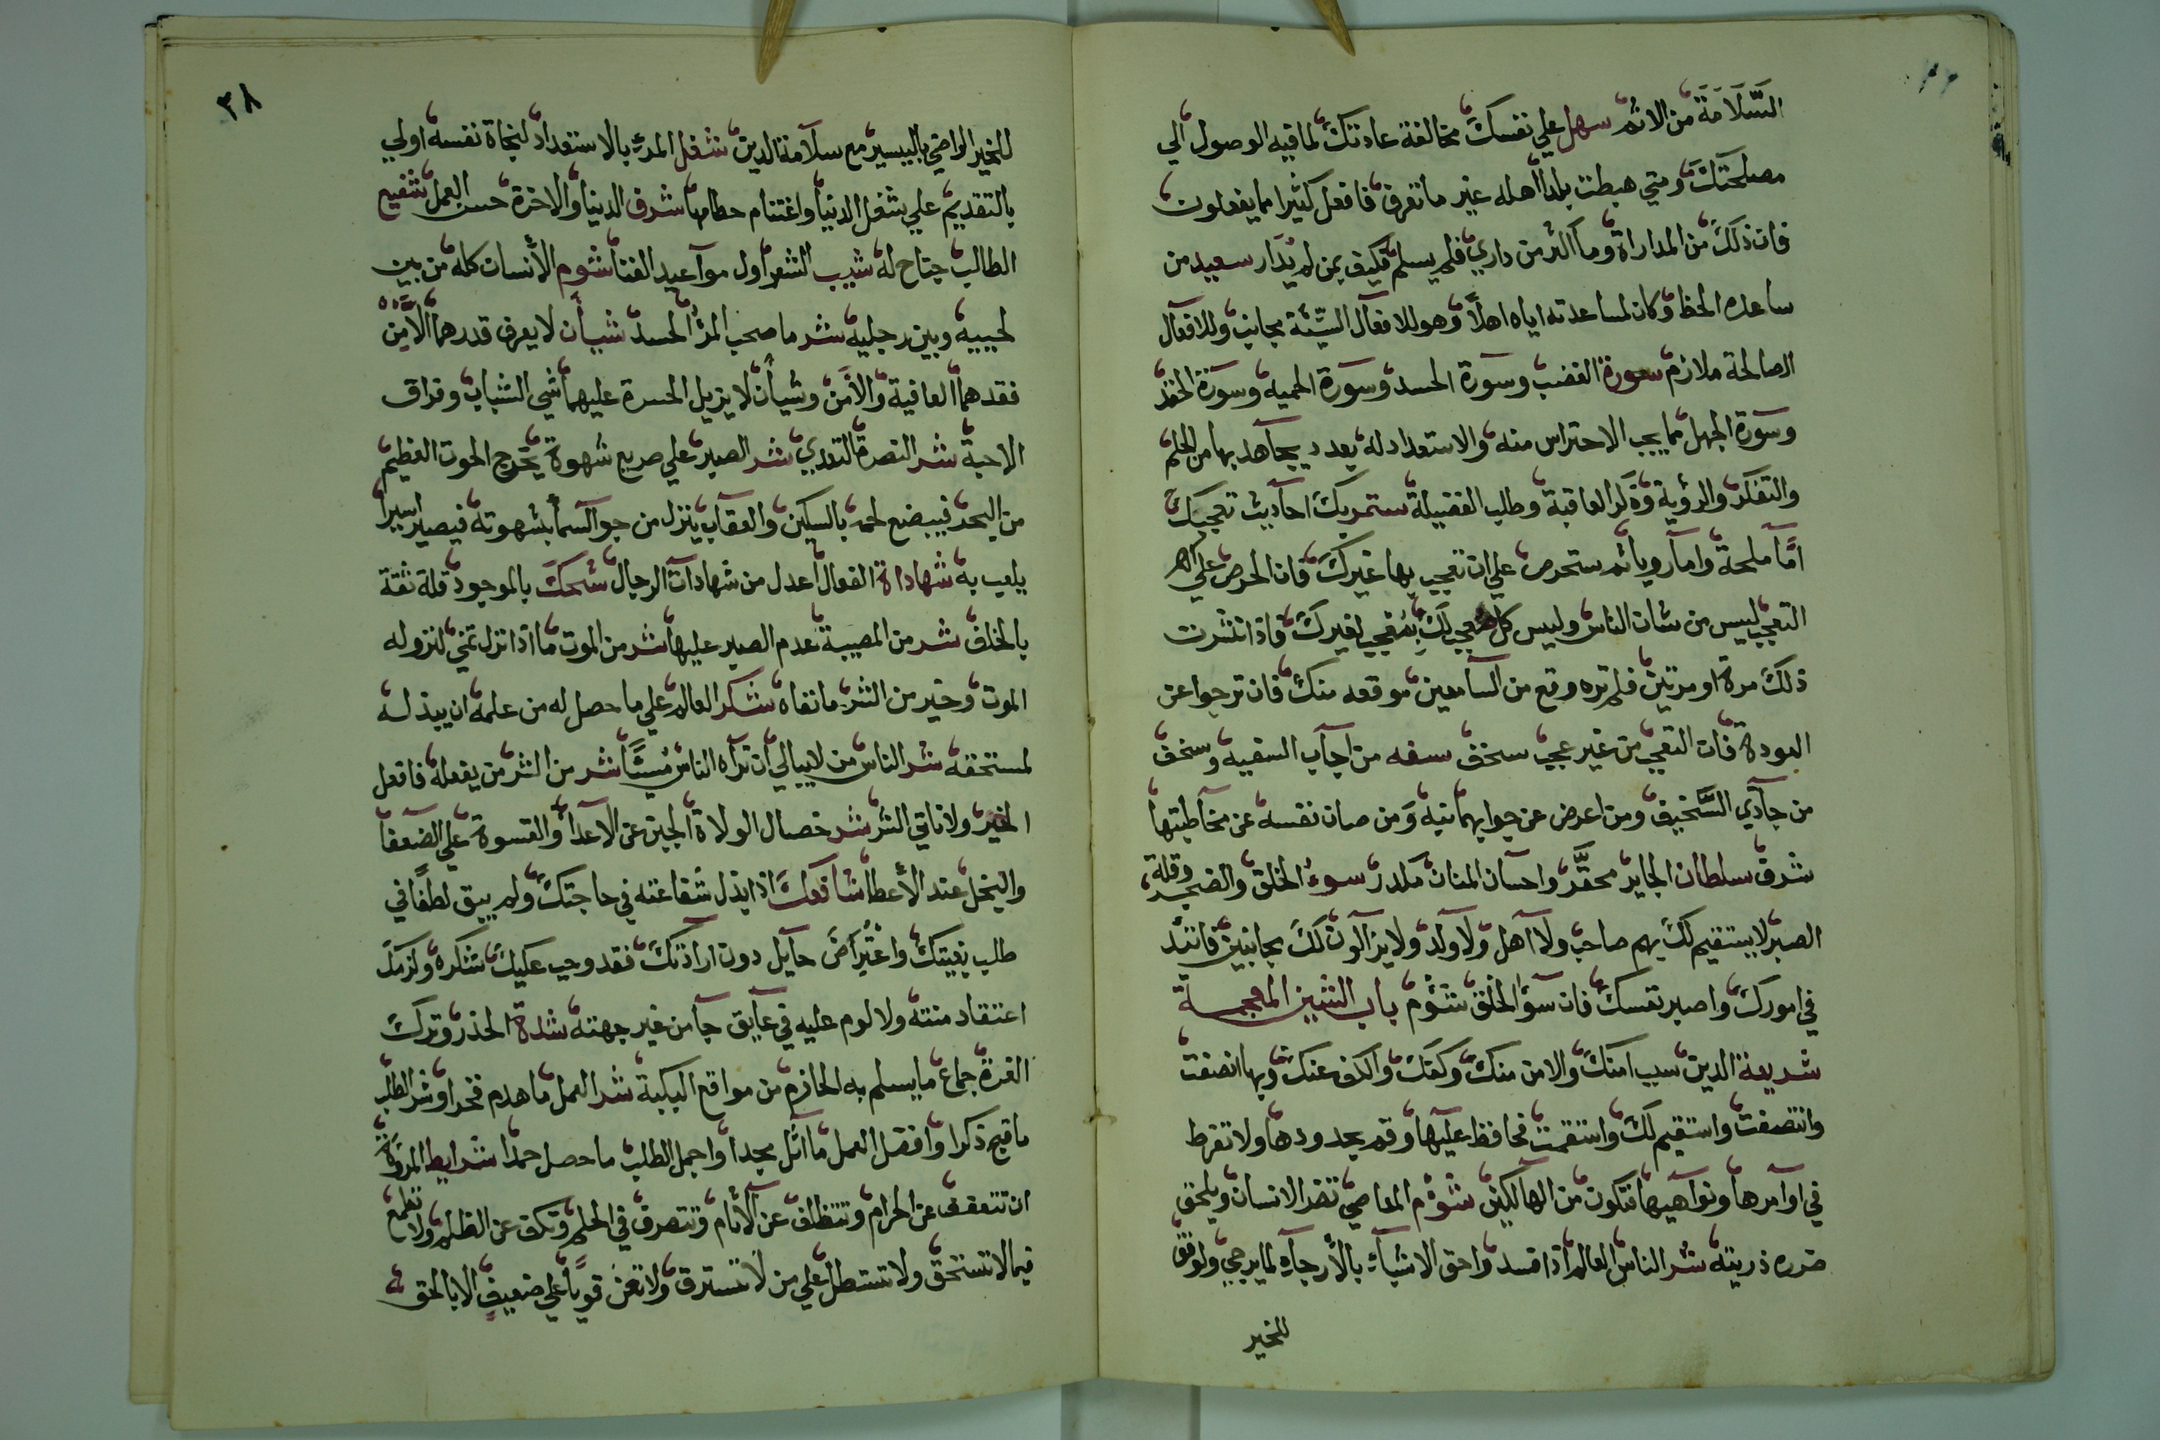 السَّلَامَة من الاثم سهل علي نفسك مخالفة عادتك لما فيه الوصول الي
مصلحتك ومتي هبطت بلدا اهله غير ما تعرف فافعل كثيرا مما يفعلون
فان ذلك من المداراة وما اكثر من داري فلم يسلم فكيف بمن لم يدار سعيد من
ساعده الحظ وكان لمساعدته اياه اهلاً وهو للافعال السيّئة مجانب وللافعال
الصالحة ملازم سورة الغضب وسورة الحسد وسورة الحميه وسورة الحقد
وسورة الجهل مما يجب الاحتراس منه والاستعداد له بعدد يجاهد بها من الحلم
والتفكر والرؤية وذكر العاقبة وطلب الفضيلة ستمر بك احاديث تعجبك
امّا ملحة واما رويا ثم ستحرص علي ان تعجب بها غيرك فان الحرص علي
التعجب ليس من شان الناس وليس كل معجب لك بمعجب لغيرك فاذا نشرت
ذلك مرة او مرتين فلم تره وقع من السامعين موقعه منك فانزجوا عن
العودة فان التعجب من غير عجب سخف سفه من اجاب السفيه وسخف
من جآدي السَّخيف ومن اعرض عن جوابهما نبه وَمن صان نفسه عن مخاطبتها
شرف سلطان الجاير محقَّر واحسان المنان مكدر سوء الخلق والضجر وقلة
الصبر لا يستقيم لك بهم صاحب ولا اهل ولا ولد ولا يزالون لك مجانبين فاتئد
في امورك واصبر نفسك فان سؤ الخلق شؤم باب الشين المعجمة
شريعة الدين سبب امنك والامن منك وكفك والكف عنك وبها انصفت
وانتصفت واستقيم لك واستقمت فحافظ عليها وقم بحدودها ولا تفرط
في اوآمرها ونواهيها فتكون من الهالكين شؤم المعاصي تضر الانسان ويلحق
ضرره ذريته شر الناس العالم اذا فسد واحق الاشيآء بالأرجآء لما يرجي ولوفق
للخير
٣٨
للخير الراضي باليسير مع سلامة الدين شغل المرء بالاستعداد لنجاة نفسه اولي
بالتقديم علي شغل الدنيا واغتنام حطامها شرف الدنيا والاخرة حسن العمل شفيع
الطالب جناح له شيب الشعر اول مواعيد الفنا شوم الأنسان كله من بين
لحييه وبين رجليه شر ما صحب المرُّ الحسد شيأن لا يعرف قدرهما الا من
فقدهما العافية والأمن وشيأن لا يزيل الحسرة عليهما شي الشباب وفراق
الاحبة شر النصرة التعدي شر الصبر علي صريع شهوة يخرج الحوت العظيم
من البحر فيبضع لحمه بالسكين والعقاب ينزل من جو السمآ بشهوته فيصير اسيراً
يلعب به شهاداة الفعال اعدل من شهادات الرجال شحك بالموجود قلة ثقة
بالخلف شر من المصيبة عدم الصبر عليها شر من الموت ما اذا نزل تمني لنزوله
الموت وخير من الشر ما نفاه شكر العالم علي ما حصل له من علمه ان يبذله
لمستحقه شر الناس من لا يبالي ان تراه الناس مُسيئًا شر من الشر من يفعله فافعل
الخير ولا تاتي الشر شر خصال الولاة الجبن عن الاعدأ والقسوة علي الضعفا
والبخل عند الأعطا شافعك اذا بذل شفاعته في حاجتك ولم يبق لطفًا في
طلب بغيتك واعتراض حايل دون ارادتك فقد وجب عليك شكره ولزمك
اعتقاد منته ولا لوم عليه في عايق جآ من غير جهته شدة الحذر وترك
الغرة جماع ما يسلم به الحازم من مواقع البكبة شر العمل ما هدم فخرا وشر الطلب
ما قبح ذكرا وافضل العمل ما اثل مجدا واجمل الطلب ما حصل حمدا شرايط المروة
ان تتعفف عن الحرام وتتنظف عن الأثام وتنصرف في الحلم وتكف عن الظلم ولا تطمع
فيما لا تستحق ولا تستطل علي من لا تسترق ولا تعن قوياً علي ضعيف الا بالحق